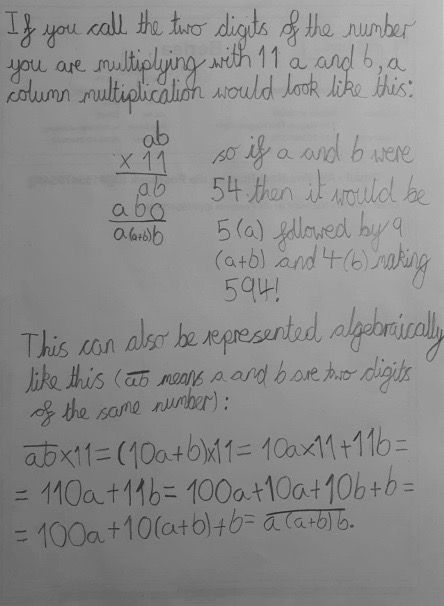 If you call the two digits of the number
you are multiplying with 11 a and b, a
column multiplication would look like this:
ab
x 11
ab
ab0
a(a+b)b
so if a and b were
54 then it would be
5(a) followed by 9
(a+b) and 4(b) making
594!
This can also be represented algebraically
like this (a̅b̅ means a and b are two digits
of the same number):
a̅b̅x11=(10a+b)x11=10ax11+11b=
= 110a+11b= 100a+10a+10b+b=
= 100a+10(a+b)+b= a̅(̅a̅+̅b̅)̅b̅.